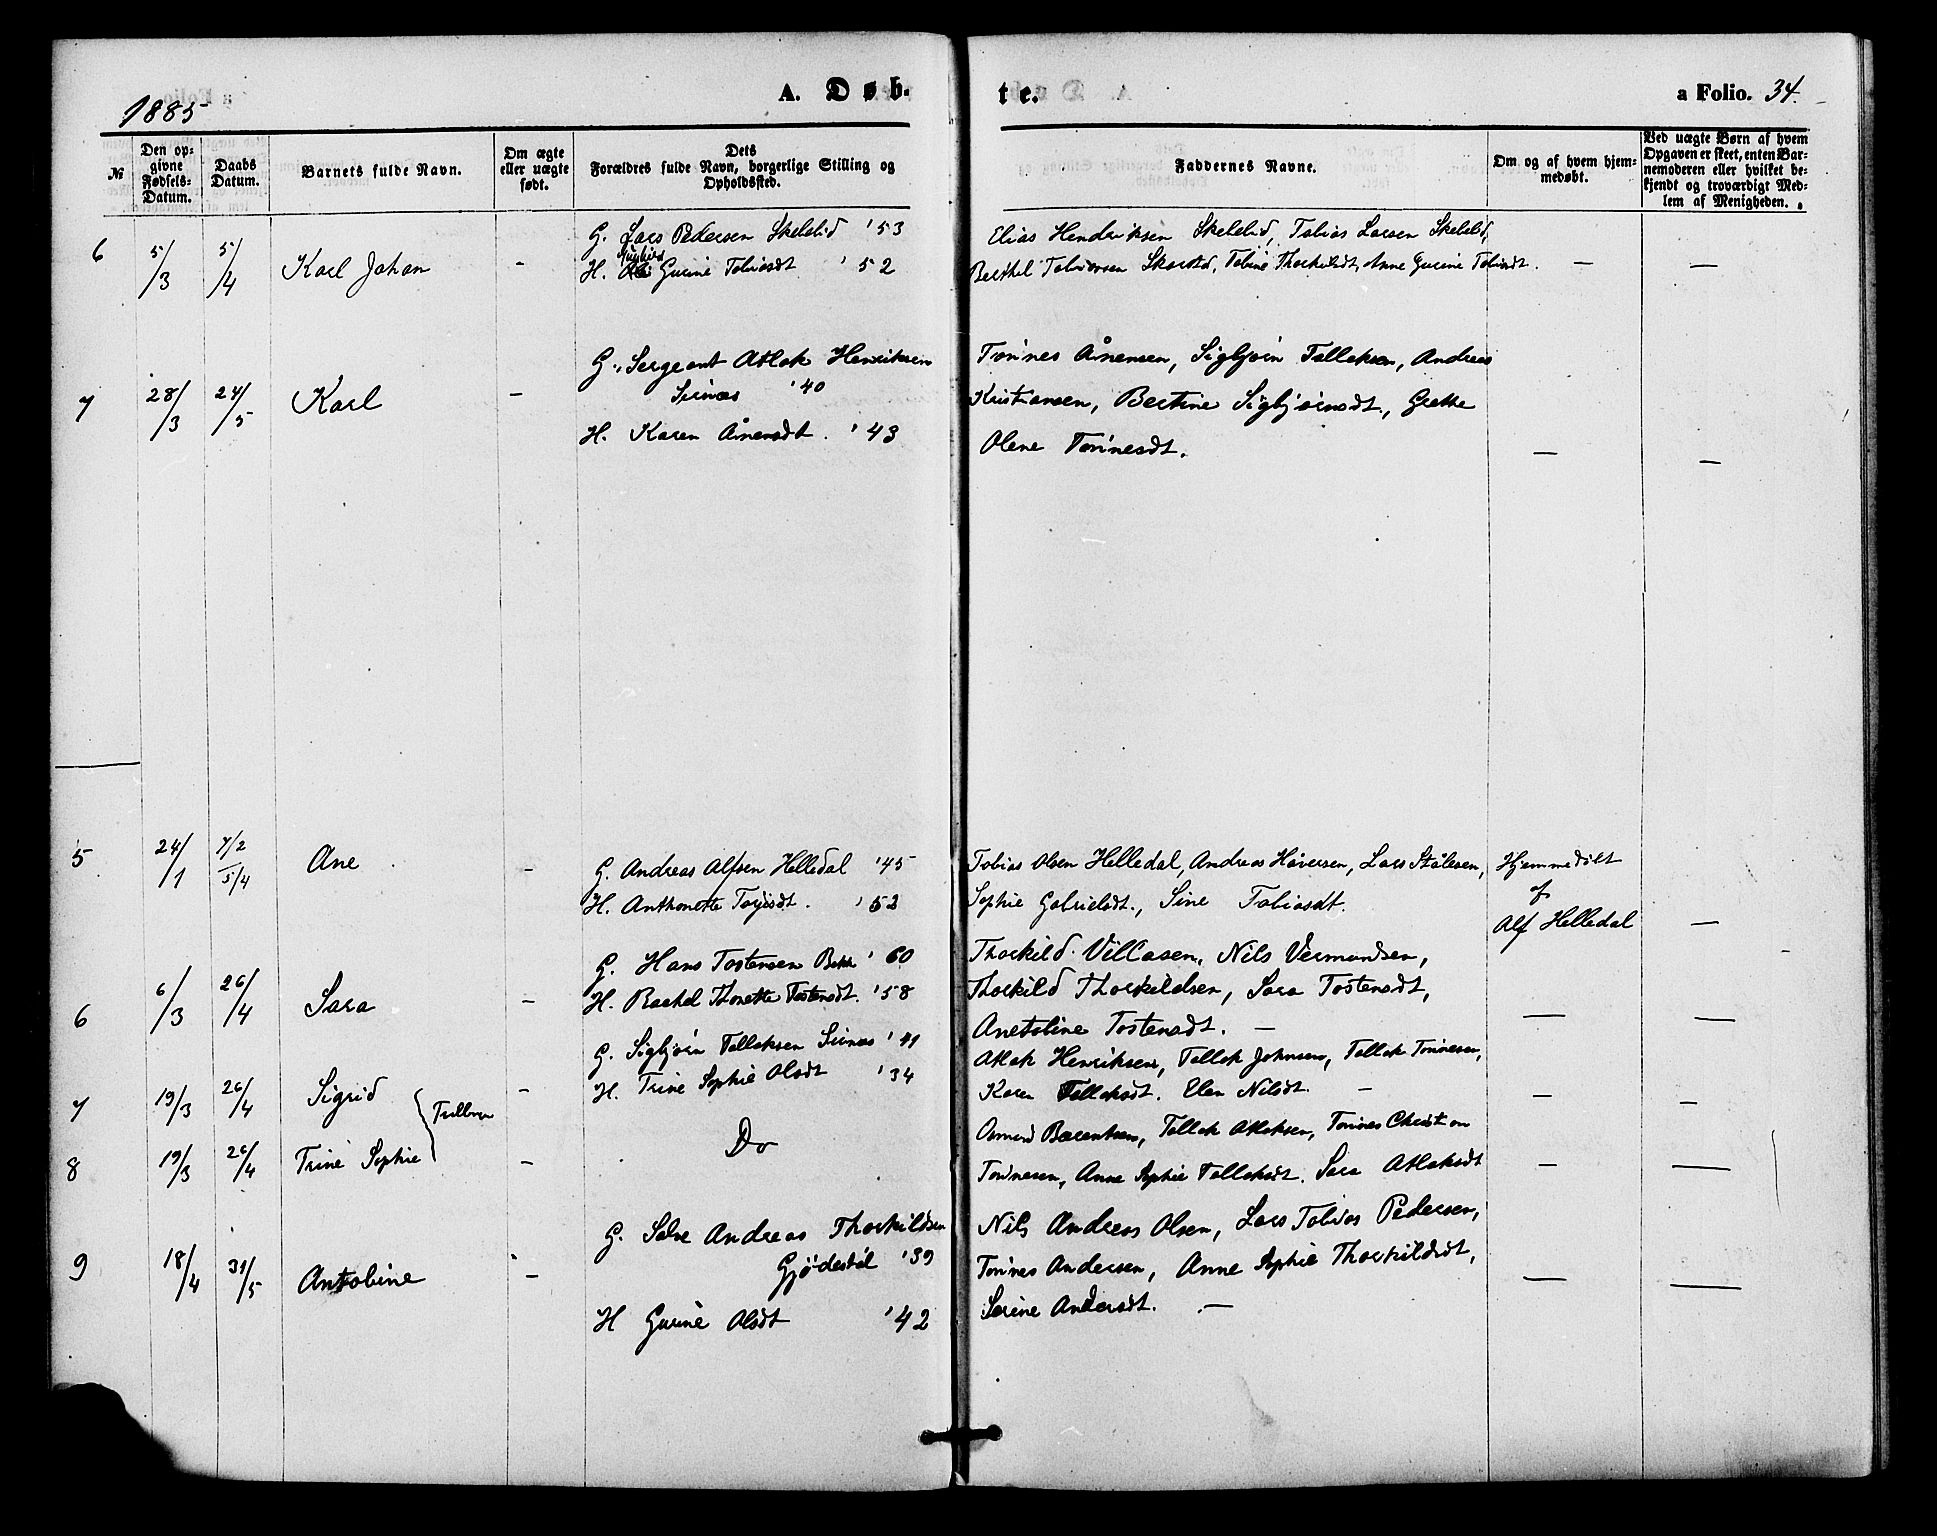 1885
A. Døb-
te.
a Folio. 34.
№
Den op-
givne
Fødsels-
Datum.
Daabs
Datum.
Barnets fulde Navn.
Om ægte
eller uægte
født.
Dets
Forældres fulde Navn, borgerlige Stilling og
Opholdssted.
Faddernes Navne.
Om og af hvem hjem-
medøbt.
Ved uægte Børn af hvem
Opgaven er skeet, enten Bar-
nemoderen eller hvilket be-
kjendt og troværdigt Med-
lem af Menigheden.
6 5/3 5/4 Karl Johan -
G. Lars Pedersen Skelelid '53
H. Gurine Tobiasdt '52
Elias Hendriksen Skelelid, Tobias Larsen Skelelid,
Berthel Tobiassen Skarsted, Tobine Thorkildsdt, Anne Gurine Tobiasdt. — —
7 28/3 24/5 Karl -
G. Sergeant Atlak Henriksen
Seinæs '40
H. Karen Ånensdt. '43
Tønnes Ånensen, Sigbjørn Tallaksen, Andreas
Kristiansen, Bertine Sigbjørnsdt, Grethe
Olene Tønnesdt. — —
5 24/1 7/2 5/4 Ane -
G. Andreas Alfsen Helledal '45
H. Anthonette Torjusdt. '52
Tobias Olsen Helledal, Andreas Håversen, Lars Stålesen,
Sophie Gabrielsdt., Sine Tobiasdt.
Hjemmedøbt
af
Alf Helledal —
6 6/3 26/4 Sara -
G. Hans Tostensen Bekk '60
H. Rachel Thonette Tostensdt. '58
Thorkild Villasen, Nils Vermundsen,
Thorkild Thorkildsen, Sara Tostensdt,
Anetoline Tostensdt. — — —
7 19/3 26/4 Sigrid } Tvillinger -
G. Sigbjørn Tallaksen Seinæs '41
H. Trine Sophie Olsdt '34
Atlak Henriksen, Tallak Johnsen, Tallak Tønnesen,
Karen Tallaksdt. Elen Nilsdt. — — —
8 19/3 26/4 Trine Sophie -
Do
Osmund Berentsen, Tallak Atlaksen, Tønnes Christian
Tønnesen, Anne Sophie Tallaksdt. Sara Atlaksdt — —
9 18/4 31/5 Antobine -
G. Salve Andreas Thorkildsen
Gjødestøl '39
H Gurine Olsdt '42
Nils Andreas Olsen, Lars Tobias Pedersen,
Tønnes Andersen, Anne Sophie Thorkildsdt,
Serine Andersdt. — — —